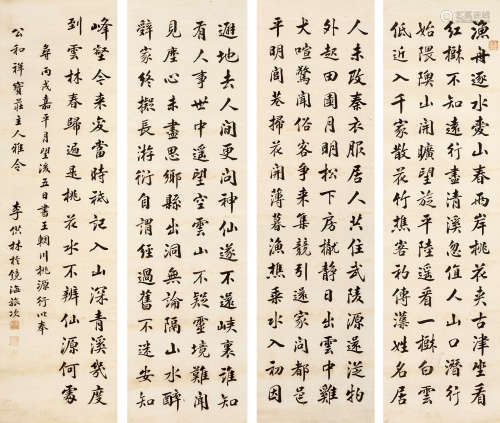 漁舟逐水愛山春兩岸桃花夾古津坐看
紅樹不知遠行盡清溪忽值人山口潛行
始隈隩山開曠望旋平陸遥看一樹白雲
低近入千家散花竹樵客初傳漢姓名居
人未改秦衣服居人共住武陵源還從物
外起田園月明松下房櫳靜日出雲中雞
犬喧驚聞俗客爭來集競引還家問都邑
平明閭巷掃花開薄暮漁樵乘水入初因
避地去人間更問神仙遂不還峽裏誰知
有人事世中遥望空雲山不疑靈境難聞
見塵心未盡思鄉縣出洞無論隔山水
辭家終擬長游衍自謂經過舊不迷安知
峰壑今來變當時祗記入山深青溪幾度
到雲林春歸遍是桃花水不辨仙源何處
尋丙戌嘉平月望後五日書王輞川桃源行以奉
公和祥寶莊主人雅令
李供林於鏡海旅次